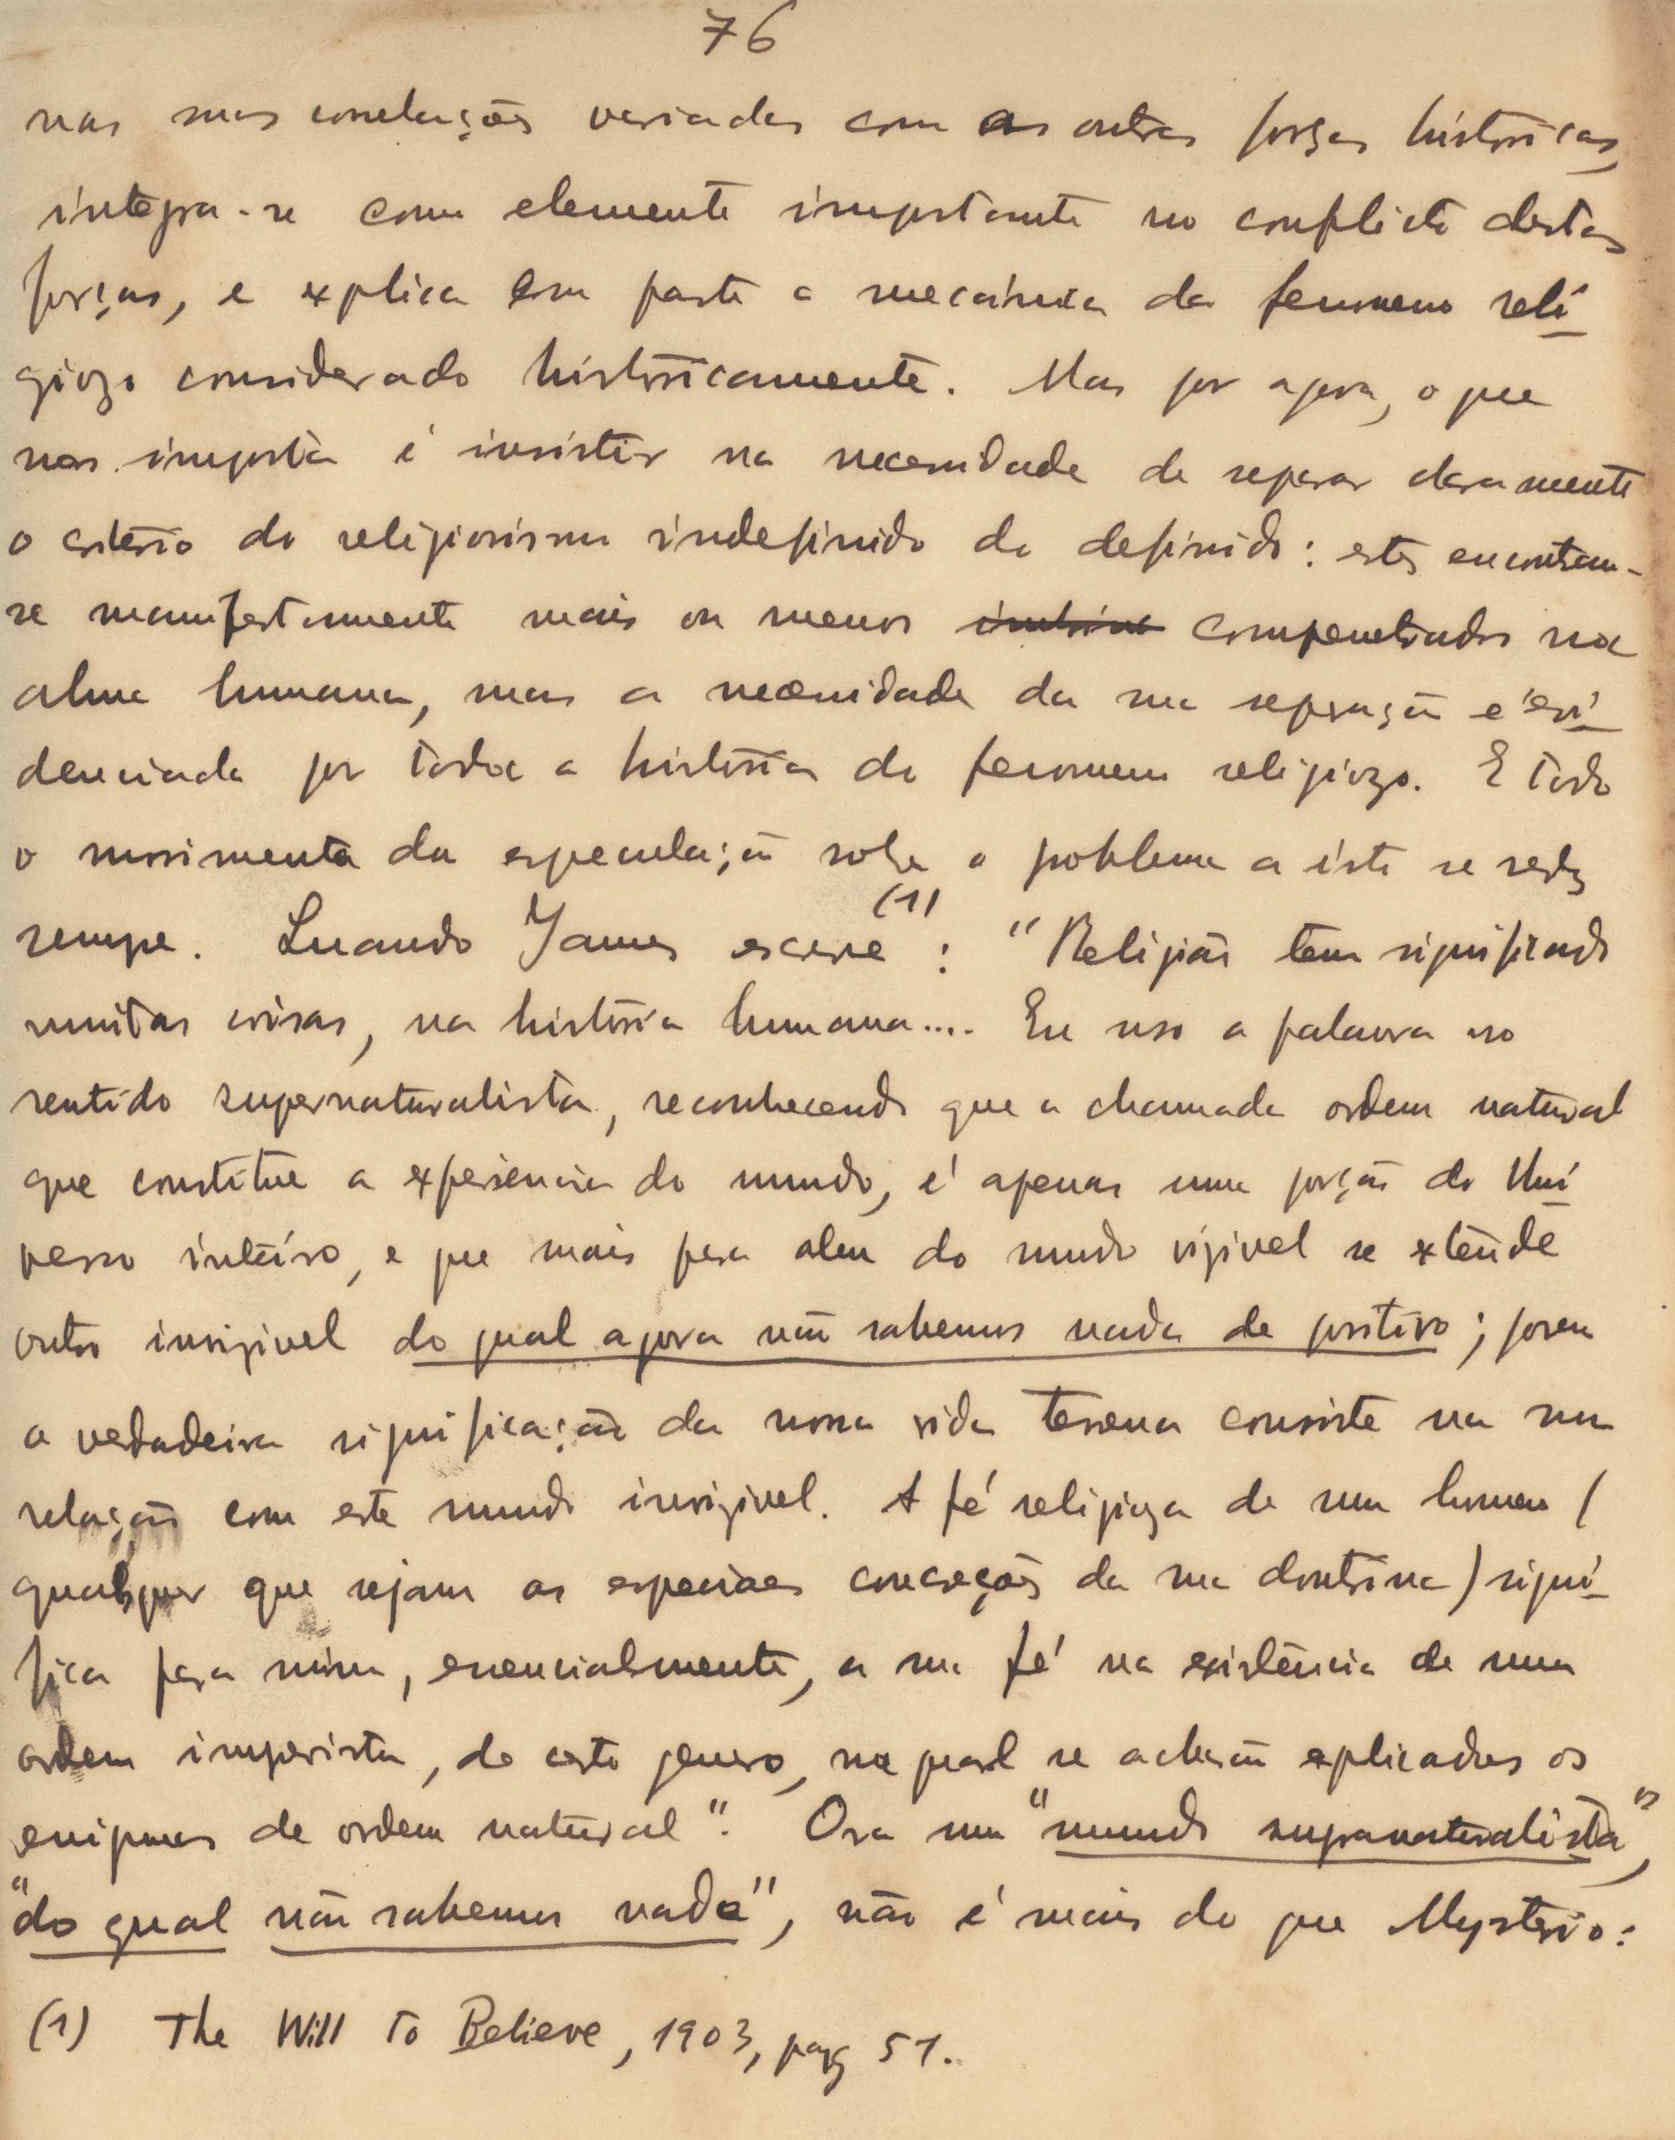 76
nas suas correlações variadas com as outras forças históricas,
integra-se como elemento importante no conflicto destas
forças, e explica em parte a mecánica do fenomeno reli
giozo considerado históricamente. Mas por agora, o que
nos importa é insistir na necessidade de separar claramente
o critério do religiosismo indefinido do definido: estes encontram-
se manifestamente mais ou menos compenetrados na
alma humana, mas a necessidade da sua separação é evi
denciada por toda a história do fenomeno religiozo. E todo
o movimento da especulação sobre o problema a isto se reduz
sempre. Quando James escreve (1): "Religião tem significado
muitas coisas, na história humana.... Eu uso a palavra no
sentido supernaturalista, reconhecendo que a chamada ordem natural
que constitue a experiencia do mundo, é apenas uma porção do Uni
verso inteiro, e que mais para alem do mundo vizivel se extende
outro invizivel do qual agora não sabemos nada de positivo; porem
a verdadeira significação da nossa vida terrena consiste na sua
relação com este mundo invizivel. A fé religioza de um homem (
qualquer que sejam as especiaes concreções da sua doutrina) signi
fica para mim, essencialmente, a sua fé na existência de uma
ordem imprevista, de certo genero, na qual se acharão explicados os
enigmas de ordem natural". Ora um "mundo supranaturalista",
"do qual não sabemos nada", não é mais do que Mysterio:
(1) The Will to Believe, 1903, pag 51.